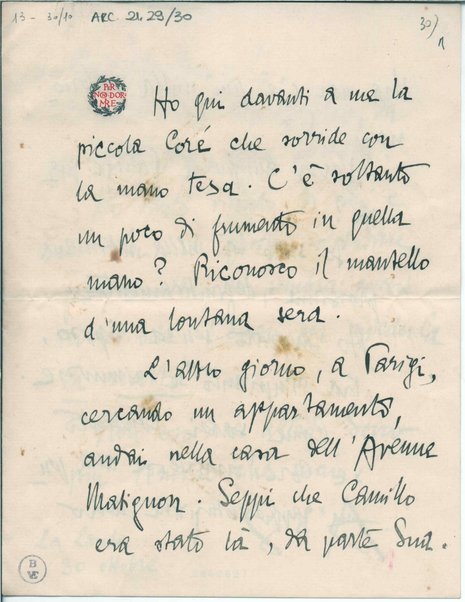 13 - 30/10 ARC. 21. 29/30
30) 1
PER
NON DOR
MIRE
Ho qui davanti a me la
piccola Coré che sorride con
la mano tesa. C'è soltanto
un poco di frumento in quella
mano? Riconosco il mantello
d'una lontana sera.
L'altro giorno, a Parigi,
cercando un appartamento,
andai nella casa dell'Avenue
Matignon. Seppi che Camillo
era stato là, da parte Sua.
B
VE